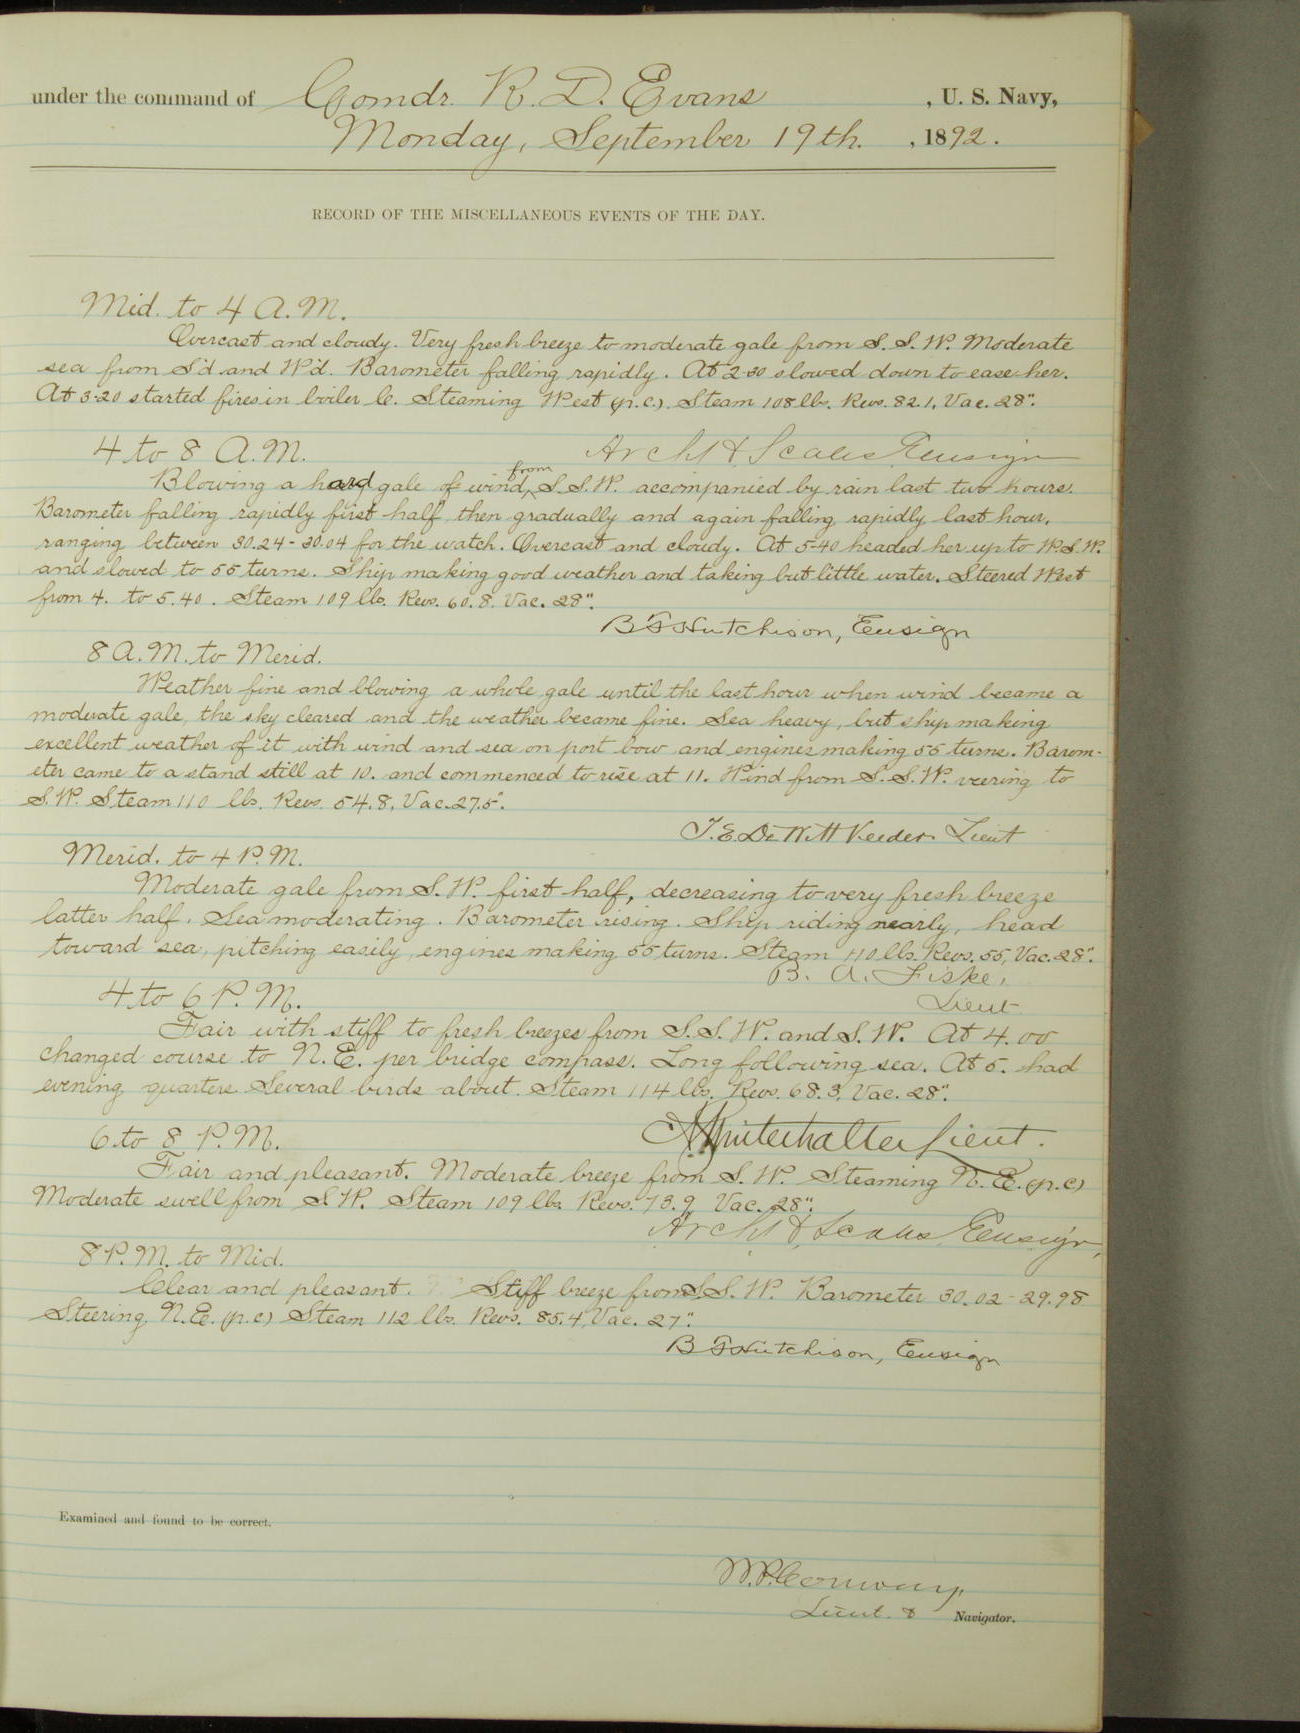 under the command of Comdr. R. D. Evans , U. S. Navy,
Monday, September 19th. , 1892.
RECORD OF THE MISCELLANEOUS EVENTS OF THE DAY.
Mid. to 4 A.M.
Overcast and cloudy. Very fresh breeze to moderate gale from S. S. W. Moderate
sea from S'd and W'd. Barometer falling rapidly. At 2-30 slowed down to ease her.
At 3-20 started fires in boiler C. Steaming West (p.c.). Steam 108 lbs. Revs. 82.1, Vac. 28".
Arch'd H. Scales Ensign
4 to 8 A.M.
Blowing a hard gale of wind from S.S.W. accompanied by rain last two hours.
Barometer falling rapidly first half, then gradually and again falling rapidly last hour,
ranging between 30.24 - 30.04 for the watch. Overcast and cloudy. At 5-40 headed her up to W.S.W.
and slowed to 55 turns. Ship making good weather and taking but little water. Steered West
from 4. to 5.40. Steam 109 lbs. Revs. 60.8. Vac. 28".
B F Hutchison, Ensign
8 A.M. to Merid.
Weather fine and blowing a whole gale until the last hour when wind became a
moderate gale, the sky cleared and the weather became fine. Sea heavy, but ship making
excellent weather of it with wind and sea on port bow and engines making 55 turns. Barom-
eter came to a stand still at 10. and commenced to rise at 11. Wind from S.S.W. veering to
S.W. Steam 110 lbs. Revs. 54.8, Vac. 27.5".
T. E. DeWitt Veeder. Lieut
Merid. to 4 P.M.
Moderate gale from S.W. first half, decreasing to very fresh breeze
latter half. Sea moderating. Barometer rising. Ship riding nearly, head
toward sea, pitching easily, engines making 55 turns. Steam 110 lbs. Revs. 55, Vac. 28".
B. A. Fiske,
Lieut
4 to 6 P.M.
Fair with stiff to fresh breezes from S.S.W. and S.W. At 4.00
changed course to N.E. per bridge compass. Long following sea. At 5. had
evening quarters. Several birds about. Steam 114 lbs. Revs. 68.3, Vac. 28".
Winterhalter Lieut.
6 to 8 P.M.
Fair and pleasant. Moderate breeze from S.W. Steaming N.E. (p.c)
Moderate swell from S.W. Steam 109 lbs. Revs. 73.9 Vac. 28".
Arch'd H. Scales Ensign,
8 P.M. to Mid.
Clear and pleasant. Stiff breeze from S.S.W. Barometer 30.02 - 29.98
Steering N.E. (p.c) Steam 112 lbs. Revs. 85.4, Vac. 27".
B F Hutchison, Ensign
Examined and found to be correct.
W.P. Conway,
Lieut. & Navigator.